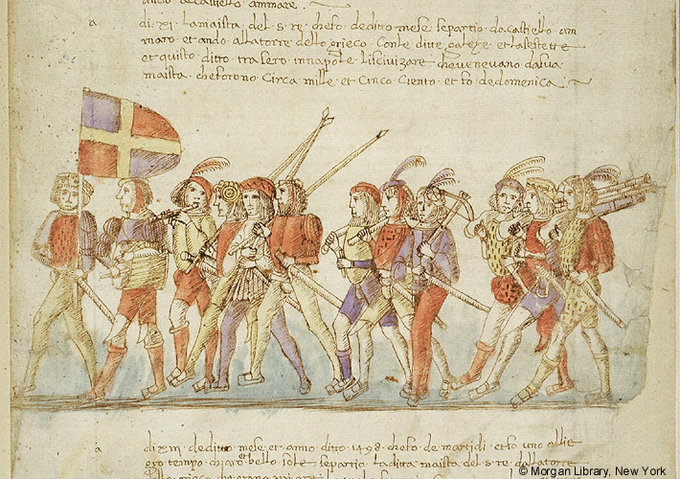 ancio accastello ammare.
a di xi lamaista del s re chefo deditto mese separtio dacastiello am
maro et ando allatorre dello grieco Conle dive galeze et lasestette
et quisto ditto trasero innapole liscivizare chevenevano dalua
maista cheforono Circa mille et Cinco Ciento et fo dedomenica
a di xvi deditto mese et anno ditto 1498 chefo de martidi et fo uno allie
gro tempo chiaro et bello sole separtio ladita maista del s re dallatorre
dello grieco
© Morgan Library, New York